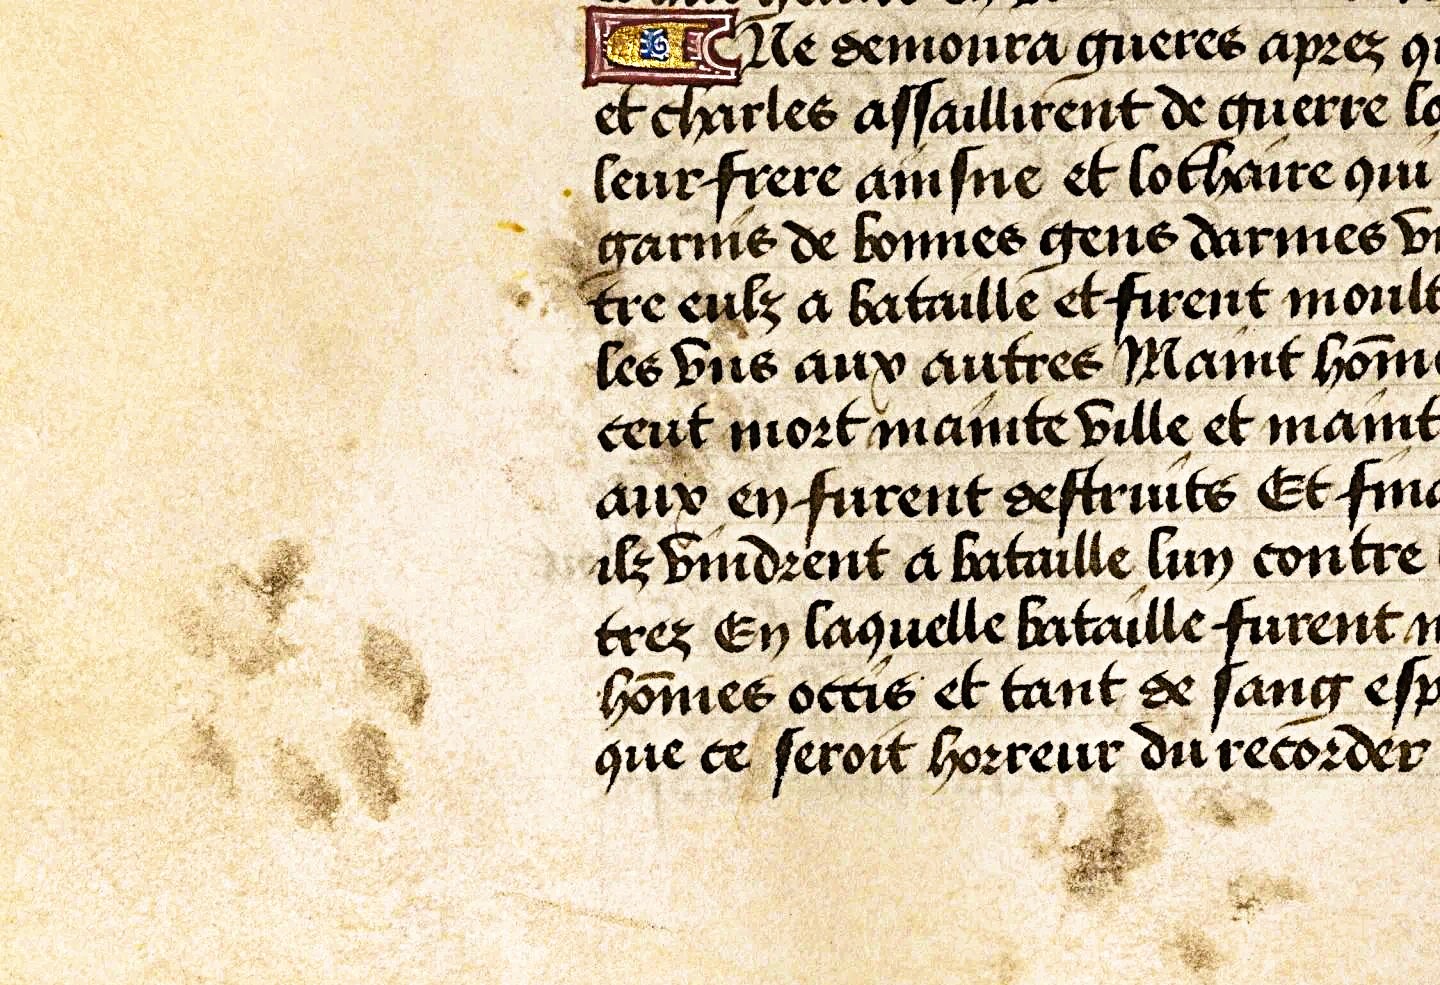 Ne demoura gueres aprez
et charles assaillirent de guerre
leur frere ainsne et lothaire qui
garnis de bonnes gens darmes
tre eulz a bataille et firent moult
les vns aux autres Maint
ceut mort mainte ville et maint
aux en furent destruits Et
ilz vindrent a bataille lun contre
trez En laquelle bataille furent
hom̄es occis et tant de sang
que ce seroit horreur du recorder